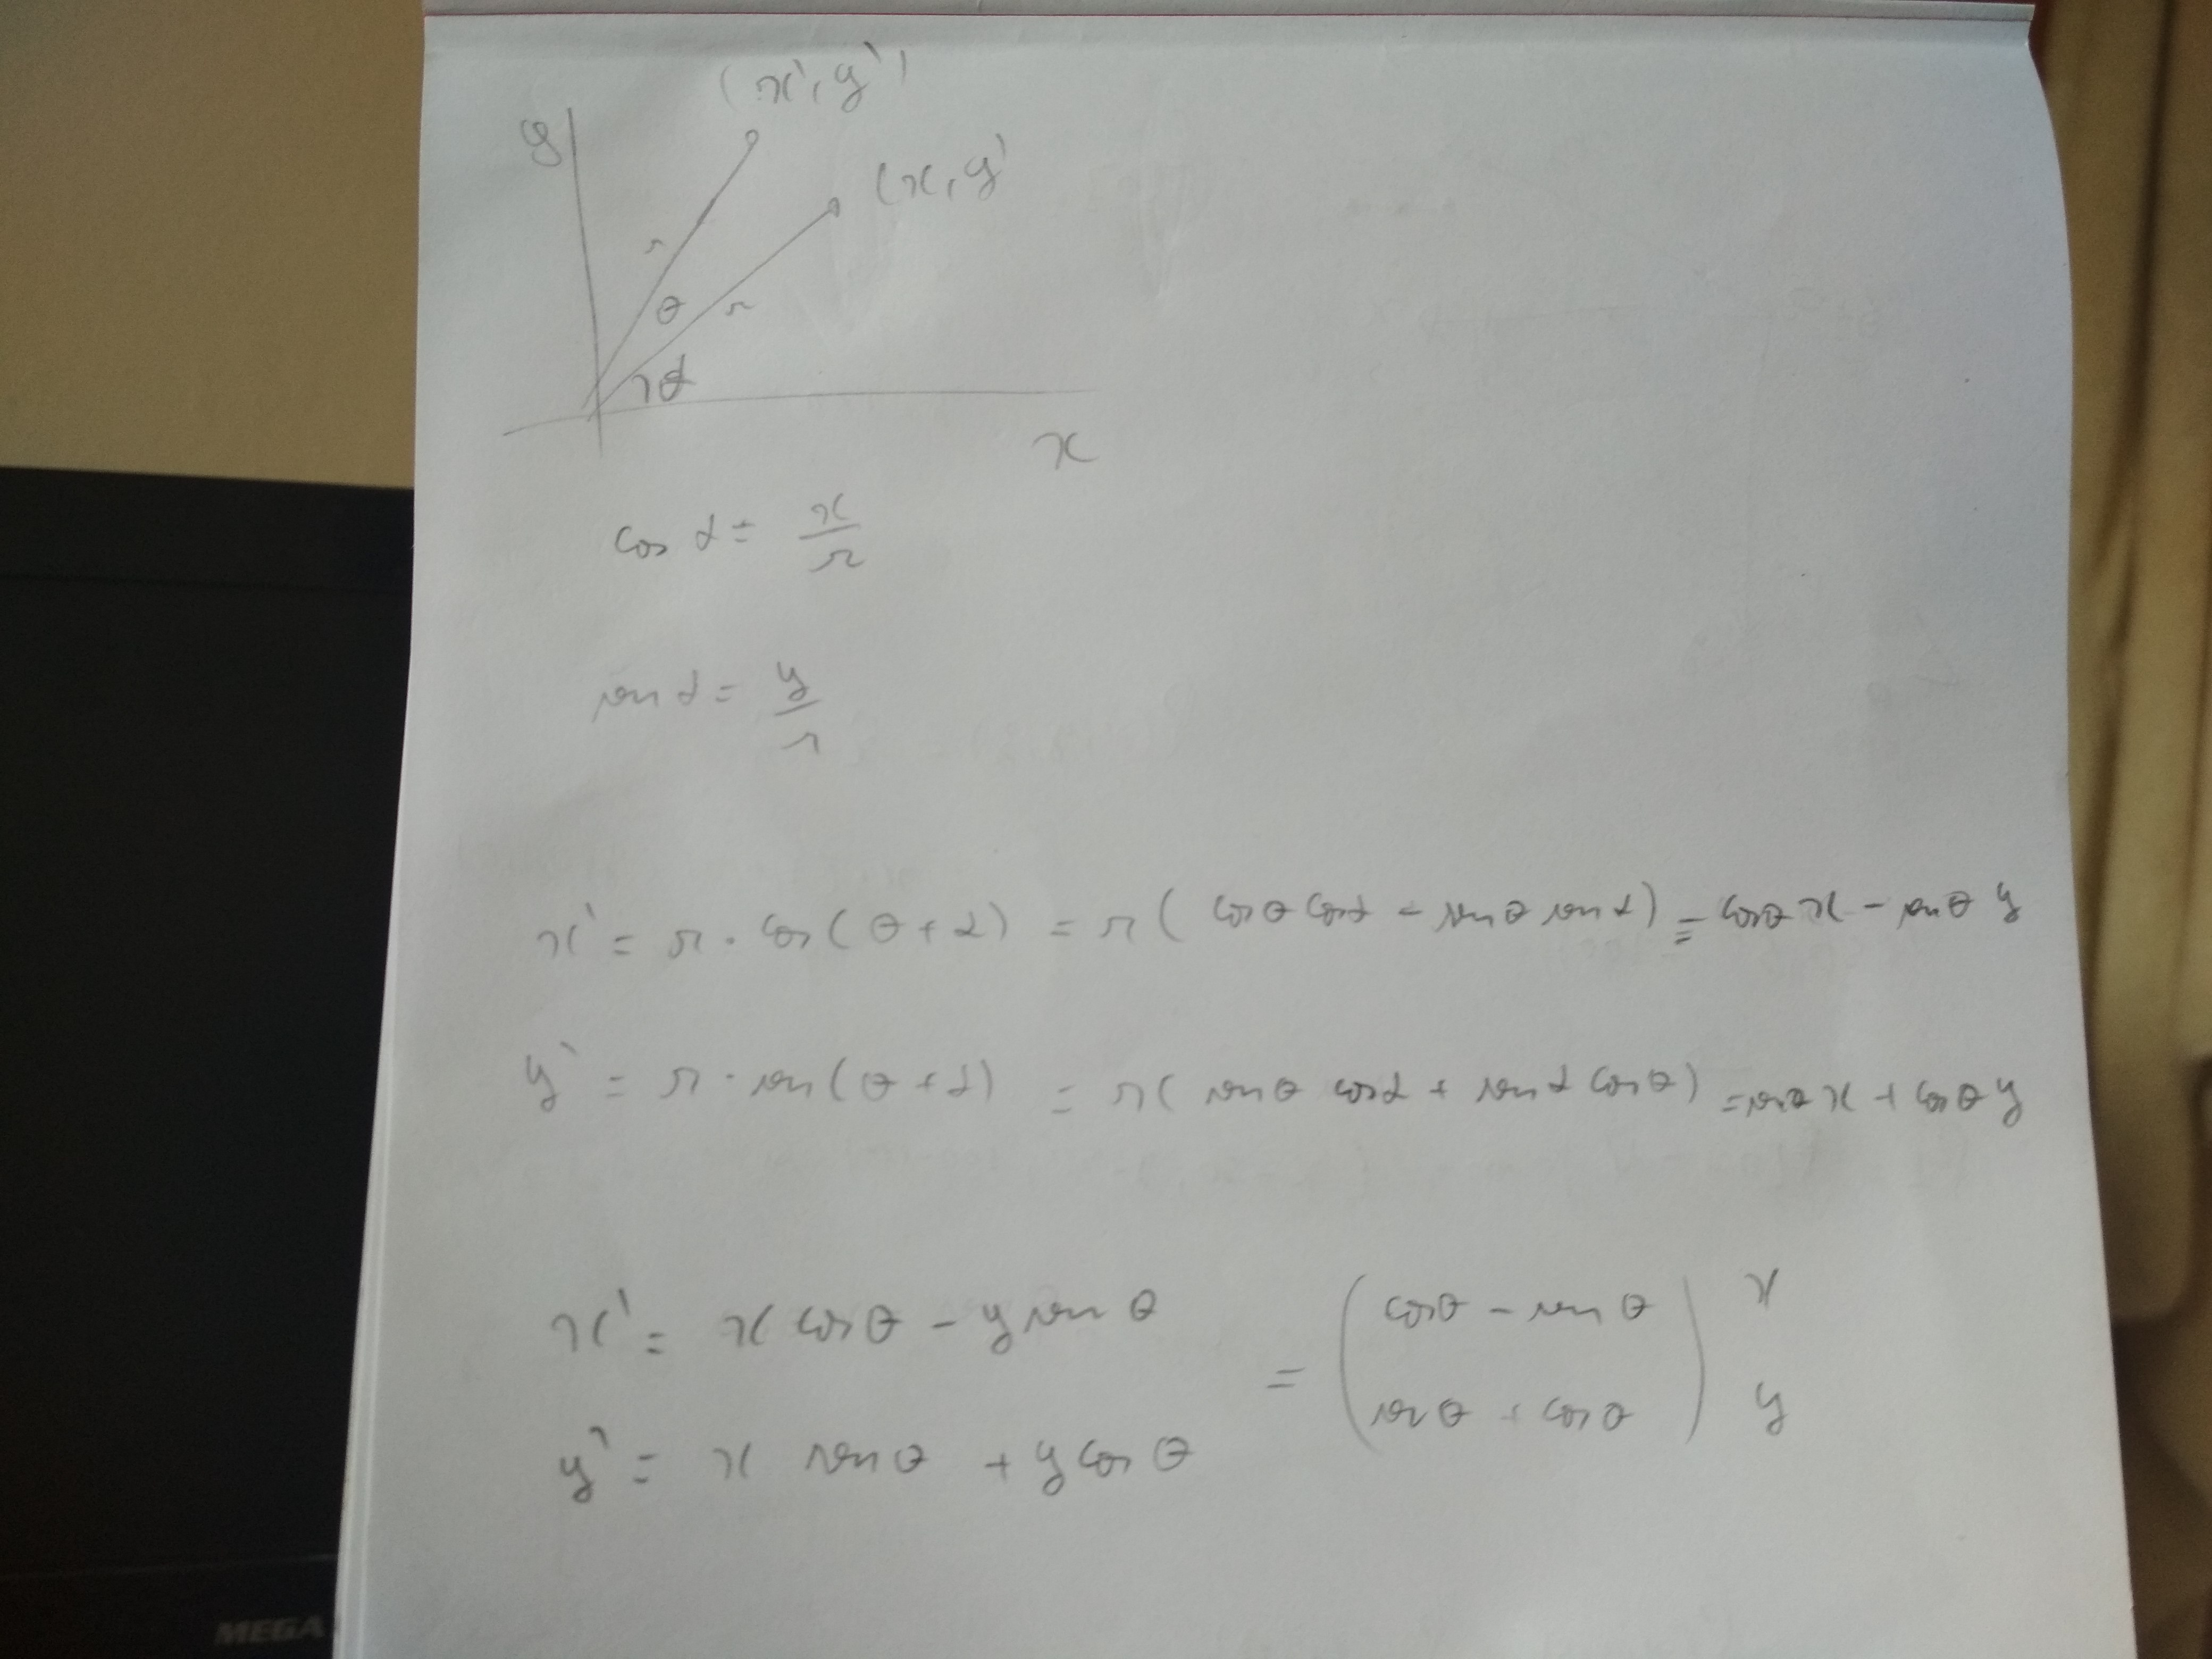 (x', y')
y
(x, y)
r
θ r
α
x
cos α = x/r
sen α = y/r
x' = r · cos(θ + α) = r( cos θ cos α - sen θ sen α) = cos θ x - sen θ y
y' = r · sen(θ + α) = r( sen θ cos α + sen α cos θ) = sen θ x + cos θ y
x' = x cos θ - y sen θ = ( cos θ - sen θ ) x
y' = x sen θ + y cos θ ( sen θ + cos θ ) y
MEGA